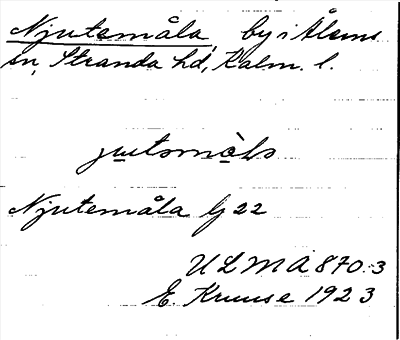 Njutemåla, by i Ålems
sn, Stranda hd, Kalm. l.
Njutemåla Lj 22
ULMA 870:3
E. Kruuse 1923